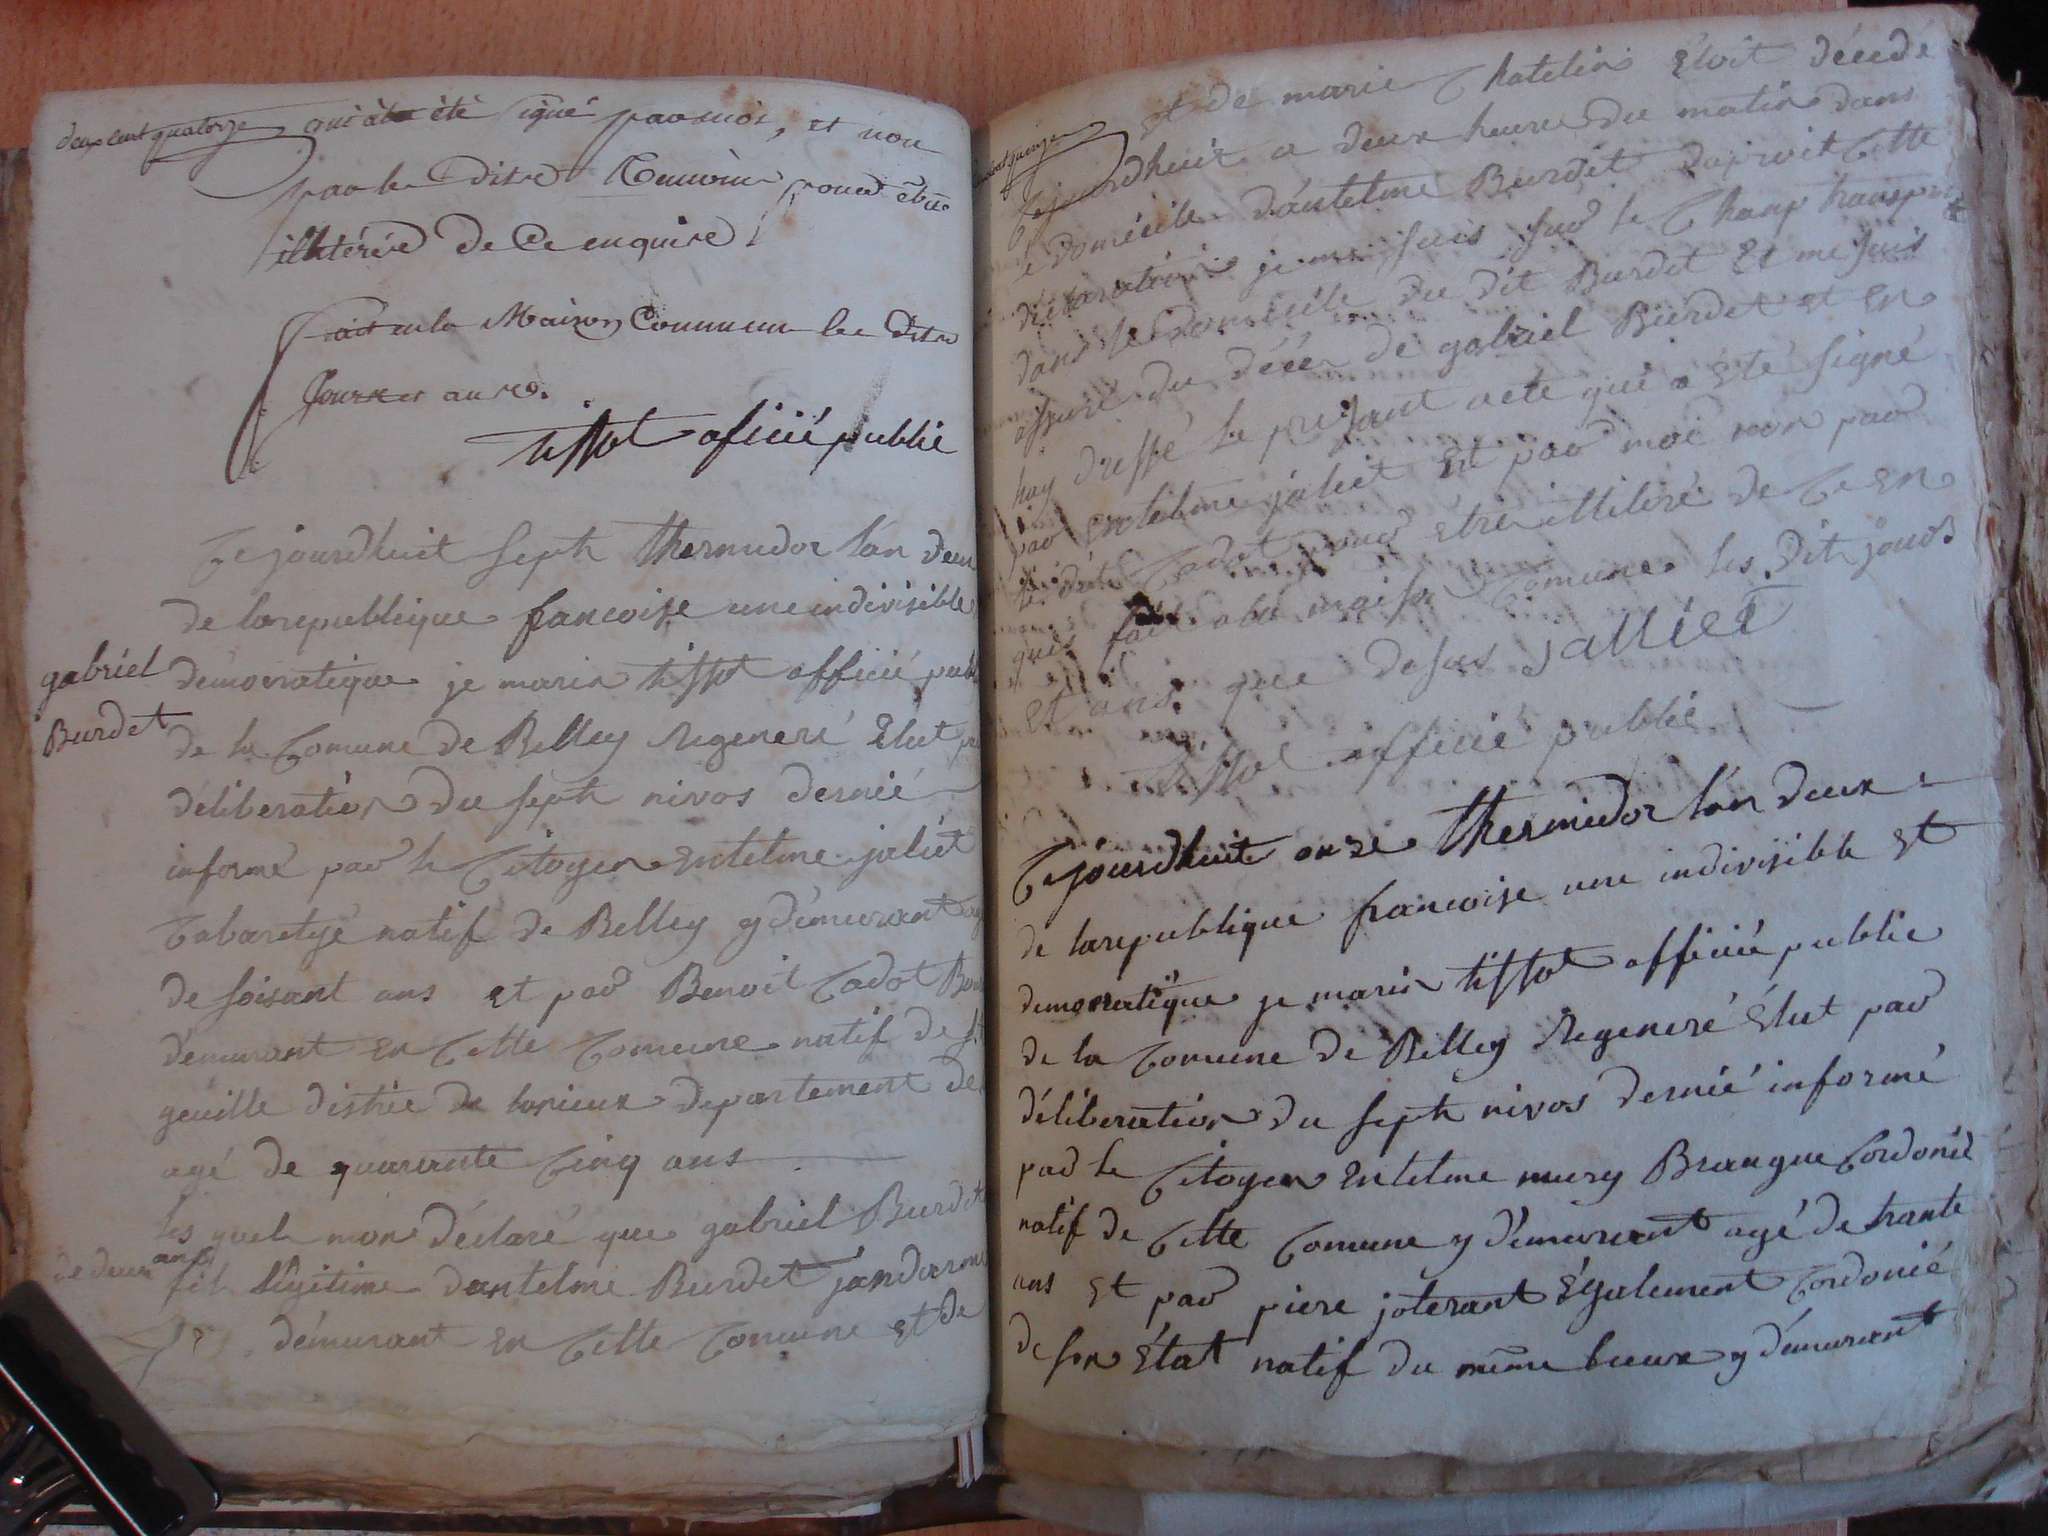 deux cent quatorze
qui a été signé par moi, et non
par les dits Temoins pour être
illitérés de ce enquire
fait en la Maison Commune les dits
Jour et an 
tissot oficié public
Ce jourdhuit septh thermidor l'an deux
de larepublique francoise une indivisible
démocratique je marin tissot officié publ
de la Comune de Belley Régeneré Elut p
déliberation du septh nivos dernié
informé par le Citoyen Entelme jaliet
Cabaretyé natif de Belley y démurant
de soisant ans et par Benoit Cadot
démurant en Cette Comune natif de
geuille distric de departement de
agé de quarante Cinq ans
les quels mon déclaré que gabriel Burdet
fil légitime dantelme Burdet jandarme
démurant en Cette Comune et de
gabriel
Burdet
de deux ans
et de marie Chatelin Etoit décedé
Cejourdhuit a deux heure du matin dans
le domicile dantelme Burdet daprait Cette
déclaration je me suis sur le Champ transpor
dans le domicile du dit Burdet Et me suis
assuré du décer de gabriel Burdet et en
hay dressé le présant acte qui a été signé
par Entelme jaliet Et par moi non par
le dit Cadot pour Etre illiteré de Ce en
quis fait a la maison Comune les dit jours
Et ans que desus jalliet
tissot officié public
Ce jourdhuit onze thermidor l'an deux
de larepublique francoise une indivisible et
démocratique je marin tissot officié public
de la Comune de Belley Régeneré Elut par
déliberation du septh nivos dernié informé
par le Citoyen Entelme mury Brangue Cordonié
natif de Cette Comune y démurant agé de trante
ans Et par piere joterant Egalement Cordonié
de son Etat natif du même lieux y démurant